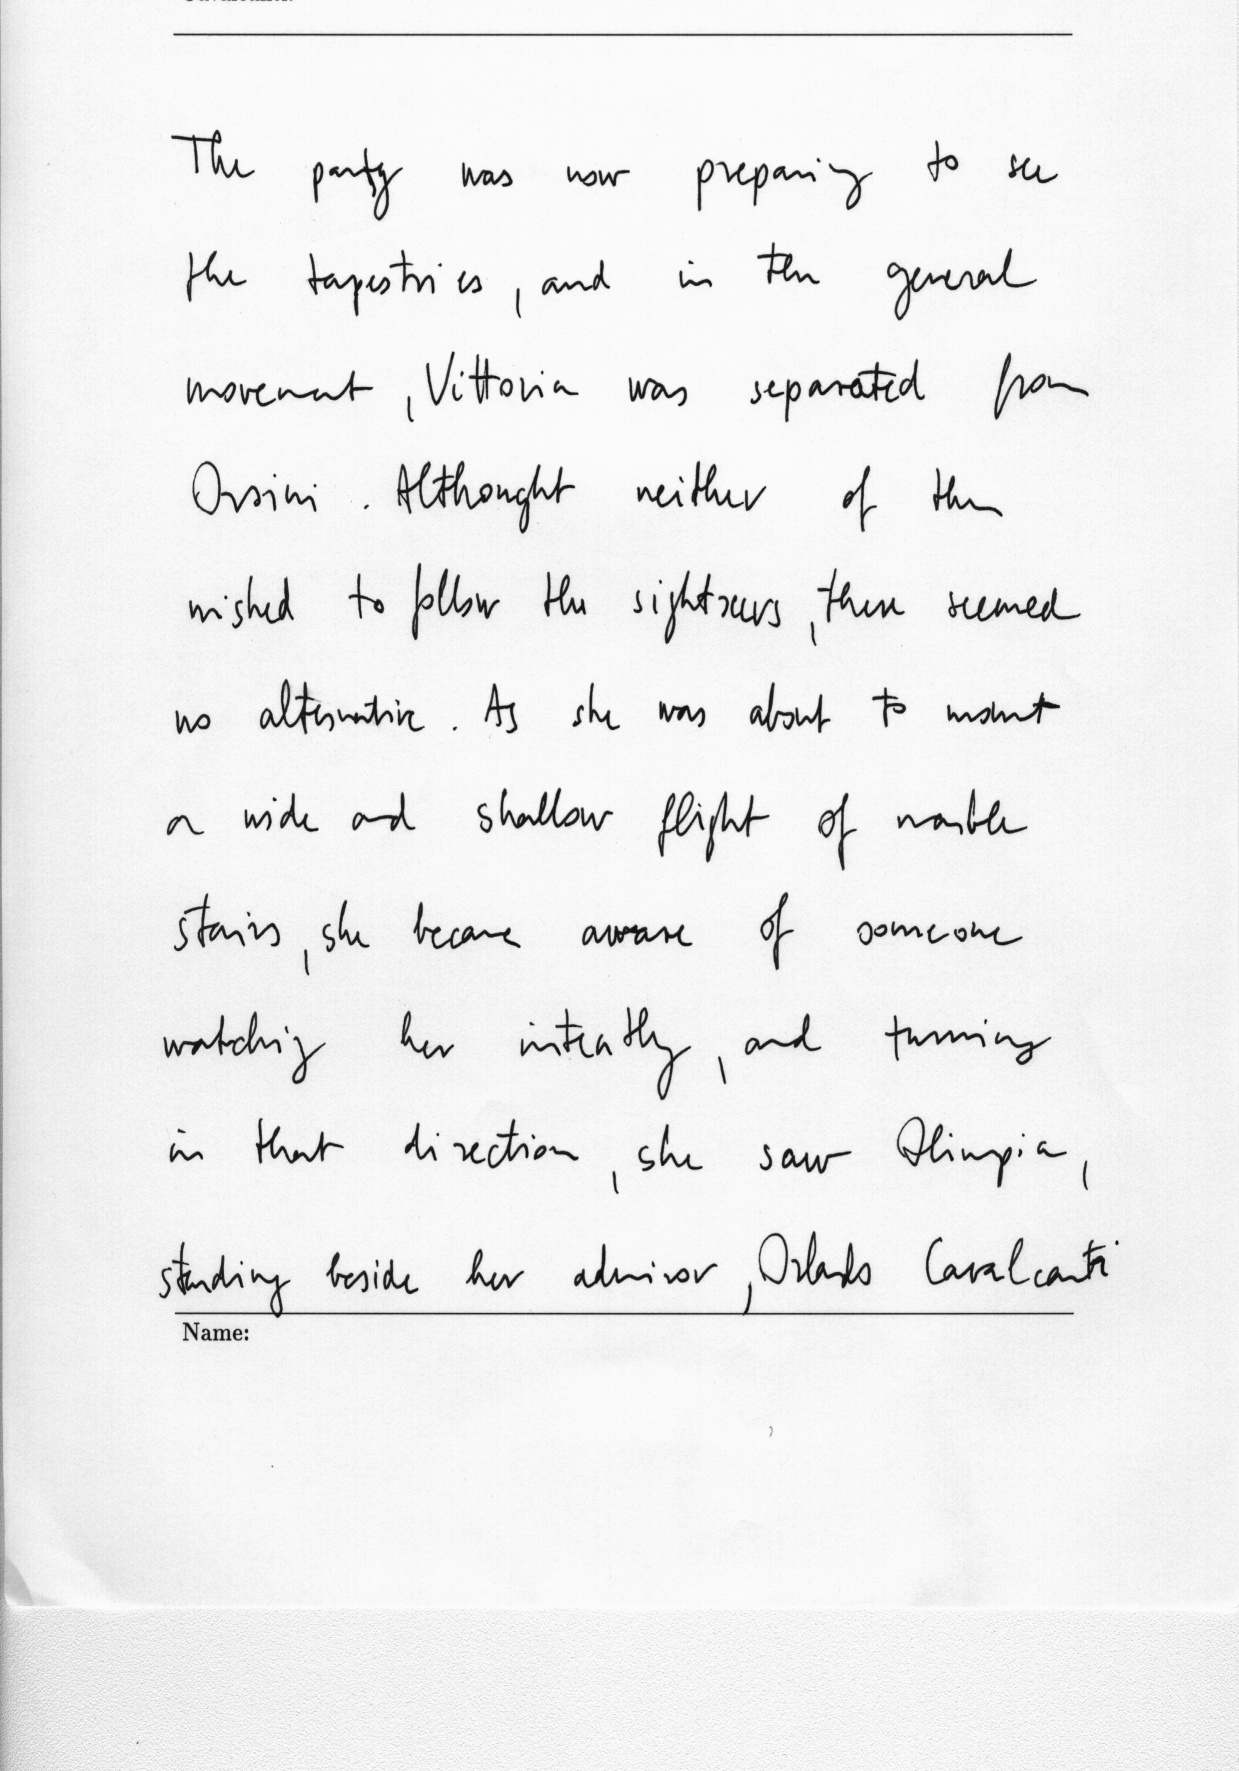 The party was now preparing to see
the tapestries, and in the general
movement, Vittoria was separated from
Orsini. Althought neither of them
wished to follow the sightseers, there seemed
no alternative. As she was about to mount
a wide and shallow flight of marble
stairs, she became aware of someone
watching her intently, and turning
in that direction, she saw Olimpia,
standing beside her admiror, Orlando Cavalcanti
Name: